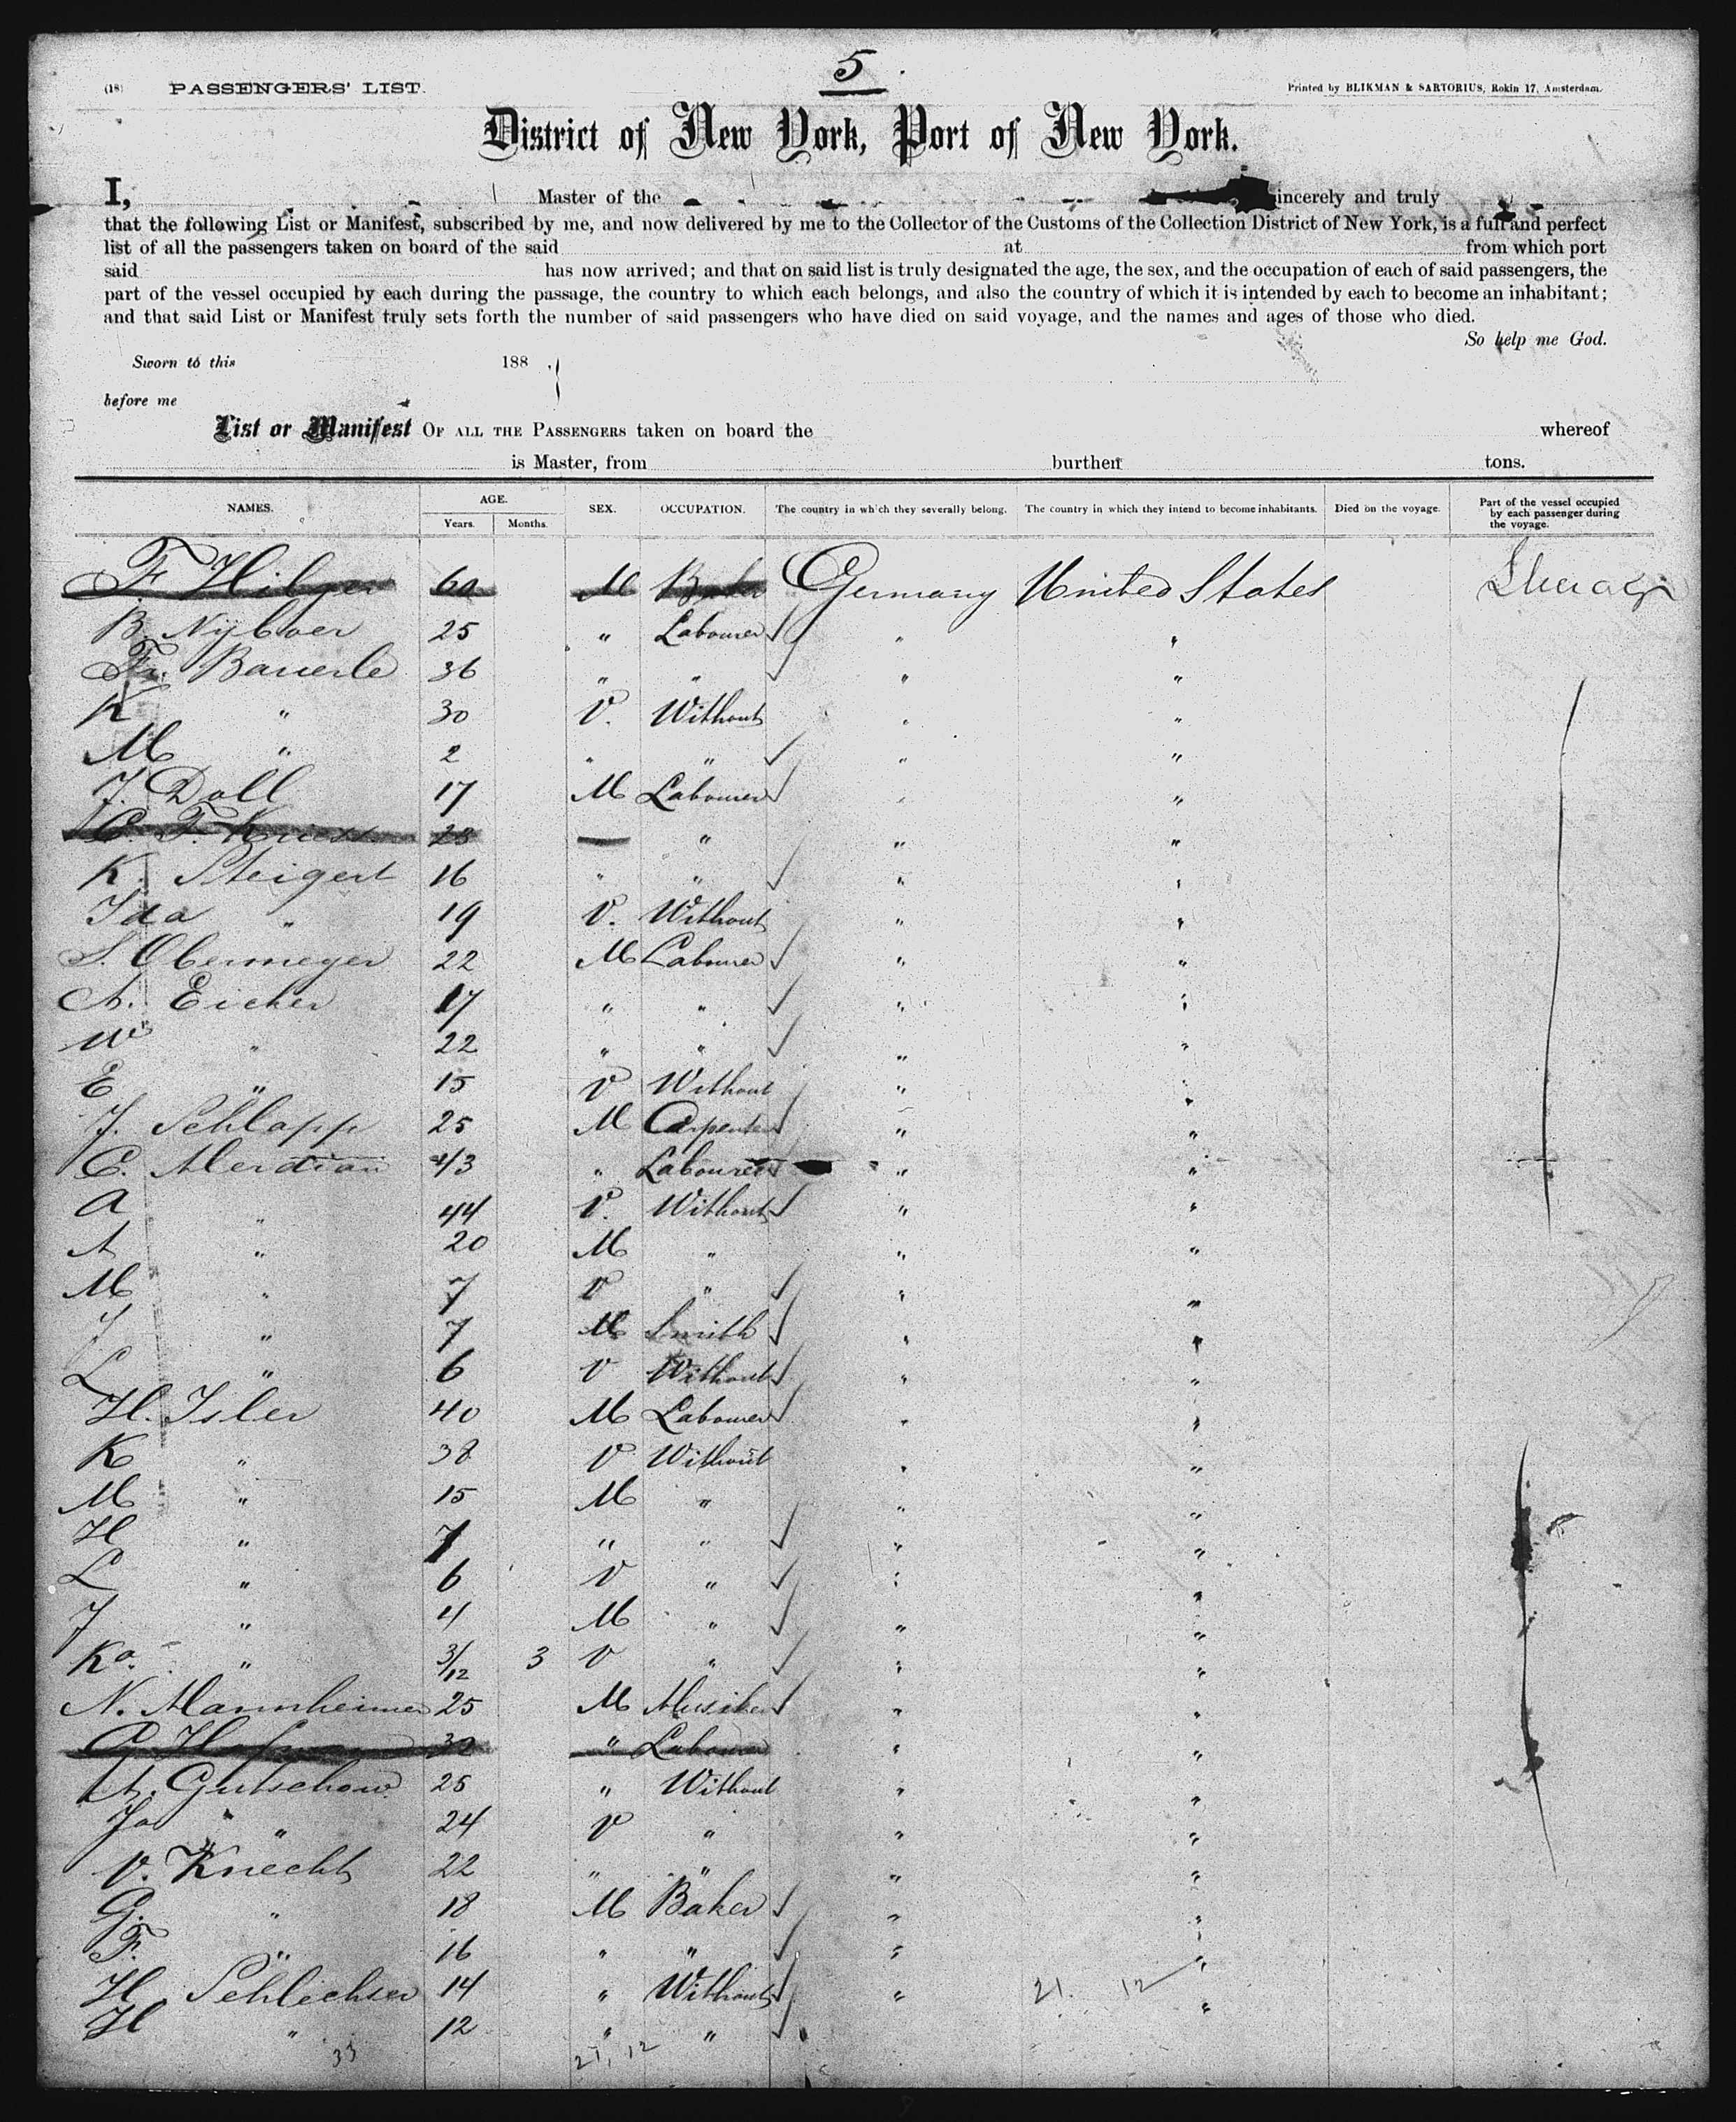 5.
(18) PASSENGERS' LIST. Printed by BLIKMAN & SARTORIUS, Rokin 17, Amsterdam.
District of New York, Port of New York.
I, Master of the sincerely and truly
that the following List or Manifest, subscribed by me, and now delivered by me to the Collector of the Customs of the Collection District of New York, is a full and perfect
list of all the passengers taken on board of the said at from which port
said has now arrived; and that on said list is truly designated the age, the sex, and the occupation of each of said passengers, the
part of the vessel occupied by each during the passage, the country to which each belongs, and also the country of which it is intended by each to become an inhabitant;
and that said List or Manifest truly sets forth the number of said passengers who have died on said voyage, and the names and ages of those who died.
So help me God.
Sworn to this 188 ,
before me
List or Manifest OF ALL THE PASSENGERS taken on board the whereof
is Master, from burthen tons.
NAMES. AGE. Years. Months. SEX. OCCUPATION. The country in which they severally belong. The country in which they intend to become inhabitants. Died on the voyage. Part of the vessel occupied by each passenger during the voyage.
F. Hilger 60 M Germany United States
B. Nyboer 25 " Labourer " "
Fr. Bauerle 36 " " " "
K " 30 V. Without " "
M " 2 " " " "
J. Doll 17 M Labourer " "
C. F. Kriess 28 " " "
K. Steigert 16 " " " "
Ida " 19 V. Without " "
S. Obermeyer 22 M Labourer " "
A. Eicker 17 " " " "
W " 22 " " " "
E " 15 V Without " "
J. Schlapp 25 M Carpenter " "
C. Merdian 43 " Labourer " "
A " 44 V. Without " "
A " 20 M " " "
M " 7 V " " "
J " 7 M Smith " "
L " 6 V Without " "
H. Isler 40 M Labourer " "
K " 38 V Without " "
M " 15 M " " "
H " 7 " " " "
L " 6 V " " "
J " 4 M " " "
Ka. " 3/12 3 V " " "
N. Mannheimer 25 M Musiker " "
32 " Labourer " "
A. Gutschow 25 " Without " "
Ja " 24 V " " "
V. Knecht 22 " " " "
G. " 18 M Baker " "
F. " 16 " " " "
H. Schlechser 14 " Without " 21. 12 "
H " 12 " " " "
33 21, 12